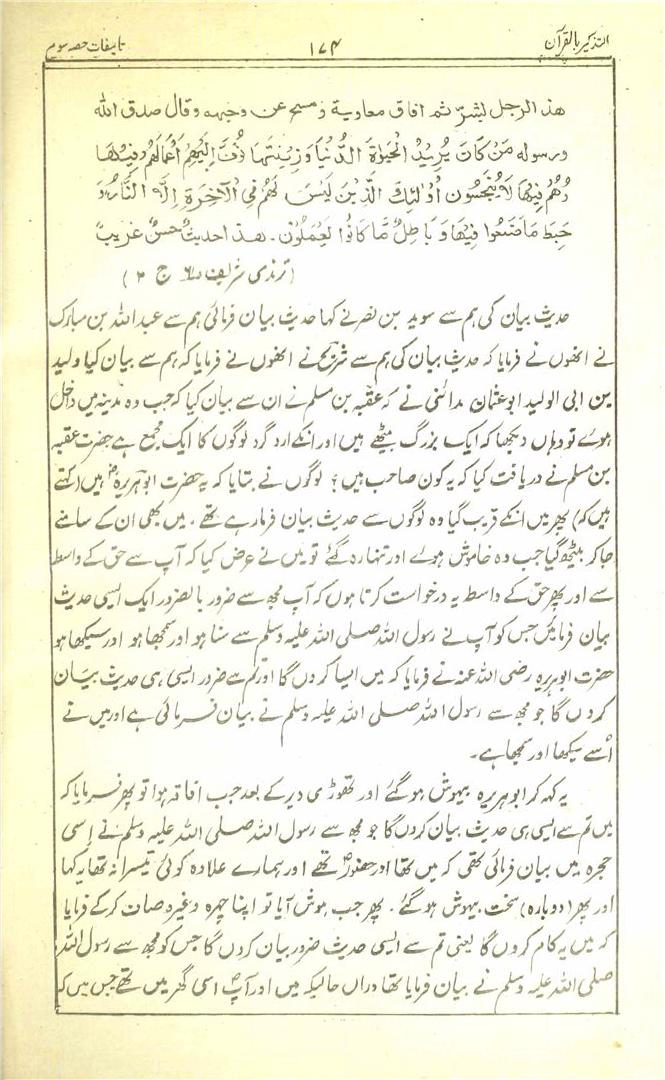 التذکیر بالقرآن ۱۷۴ تالیفات حصہ سوم
هذا الرجل لبشرّ ثم افاق معاوية و مسح عن وجهه وقال صدق الله
ورسوله مَنْ كَانَ يُرِيْدُ الْحَيٰوةَ الدُّنْيَا وَزِيْنَتَهَا نُوَفِّ إِلَيْهِمْ أَعْمَالَهُمْ فِيْهَا
وَهُمْ فِيْهَا لَا يُبْخَسُوْنَ أُولٰئِكَ الَّذِيْنَ لَيْسَ لَهُمْ فِي الْآخِرَةِ إِلَّا النَّارُ وَ
حَبِطَ مَا صَنَعُوْا فِيْهَا وَ بَاطِلٌ مَّا كَانُوْا يَعْمَلُوْنَ۔ هذا حديث حسن غريب
(ترمذی شریف ج ۲)
حدیث بیان کی ہم سے سوید بن نصر نے کہا حدیث بیان فرمائی ہم سے عبداللہ بن مبارک
نے انھوں نے فرمایا کہ حدیث بیان کی ہم سے شریح نے انھوں نے فرمایا کہ ہم سے بیان کیا ولید
بن ابی الولید ابو عثمان مدائنی نے کہ عقبہ بن مسلم نے ان سے بیان کیا کہ جب وہ مدینہ میں داخل
ہوئے تو وہاں دیکھا کہ ایک بزرگ بیٹھے ہیں اور انکے ارد گرد لوگوں کا ایک مجمع ہے حضرت عقبہ
بن مسلم نے دریافت کیا کہ یہ کون صاحب ہیں؟ لوگوں نے بتایا کہ یہ حضرت ابو ہریرہؓ ہیں (کہتے
ہیں کہ) پھر میں انکے قریب گیا وہ لوگوں سے حدیث بیان فرما رہے تھے۔ میں بھی ان کے سامنے
جا کر بیٹھ گیا جب وہ خاموش ہوئے اور تنہا رہ گئے تو میں نے عرض کیا کہ آپ سے حق کے واسطہ
سے اور پھر حق کے واسطہ یہ درخواست کرتا ہوں کہ آپ مجھ سے ضرور بالضرور ایک ایسی حدیث
بیان فرمائیں جس کو آپ نے رسول اللہ صلی اللہ علیہ وسلم سے سنا ہو اور سمجھا ہو اور سیکھا ہو
حضرت ابو ہریرہ رضی اللہ عنہ نے فرمایا کہ میں ایسا کروں گا اور تم سے ضرور ایسی ہی حدیث بیان
کروں گا جو مجھ سے رسول اللہ صلی اللہ علیہ وسلم نے بیان فرمائی ہے اور میں نے
اُسے سیکھا اور سمجھا ہے۔
یہ کہہ کر ابو ہریرہ بیہوش ہو گئے اور تھوڑی دیر کے بعد جب افاقہ ہوا تو پھر فرمایا کہ
میں تم سے ایسی ہی حدیث بیان کروں گا جو مجھ سے رسول اللہ صلی اللہ علیہ وسلم نے اسی
حجرہ میں بیان فرمائی تھی کہ میں تھا اور حضورؐ تھے اور ہمارے علاوہ کوئی تیسرا نہ تھا یہ کہا
اور پھر (دوبارہ) سخت بیہوش ہو گئے۔ پھر جب ہوش آیا تو اپنا چہرہ وغیرہ صاف کر کے فرمایا
کہ میں یہ کام کروں گا یعنی تم سے ایسی حدیث ضرور بیان کروں گا جس کو مجھ سے رسول اللہ
صلی اللہ علیہ وسلم نے بیان فرمایا تھا دراں حالیکہ میں اور آپؐ اسی گھر میں تھے جس میں کہ